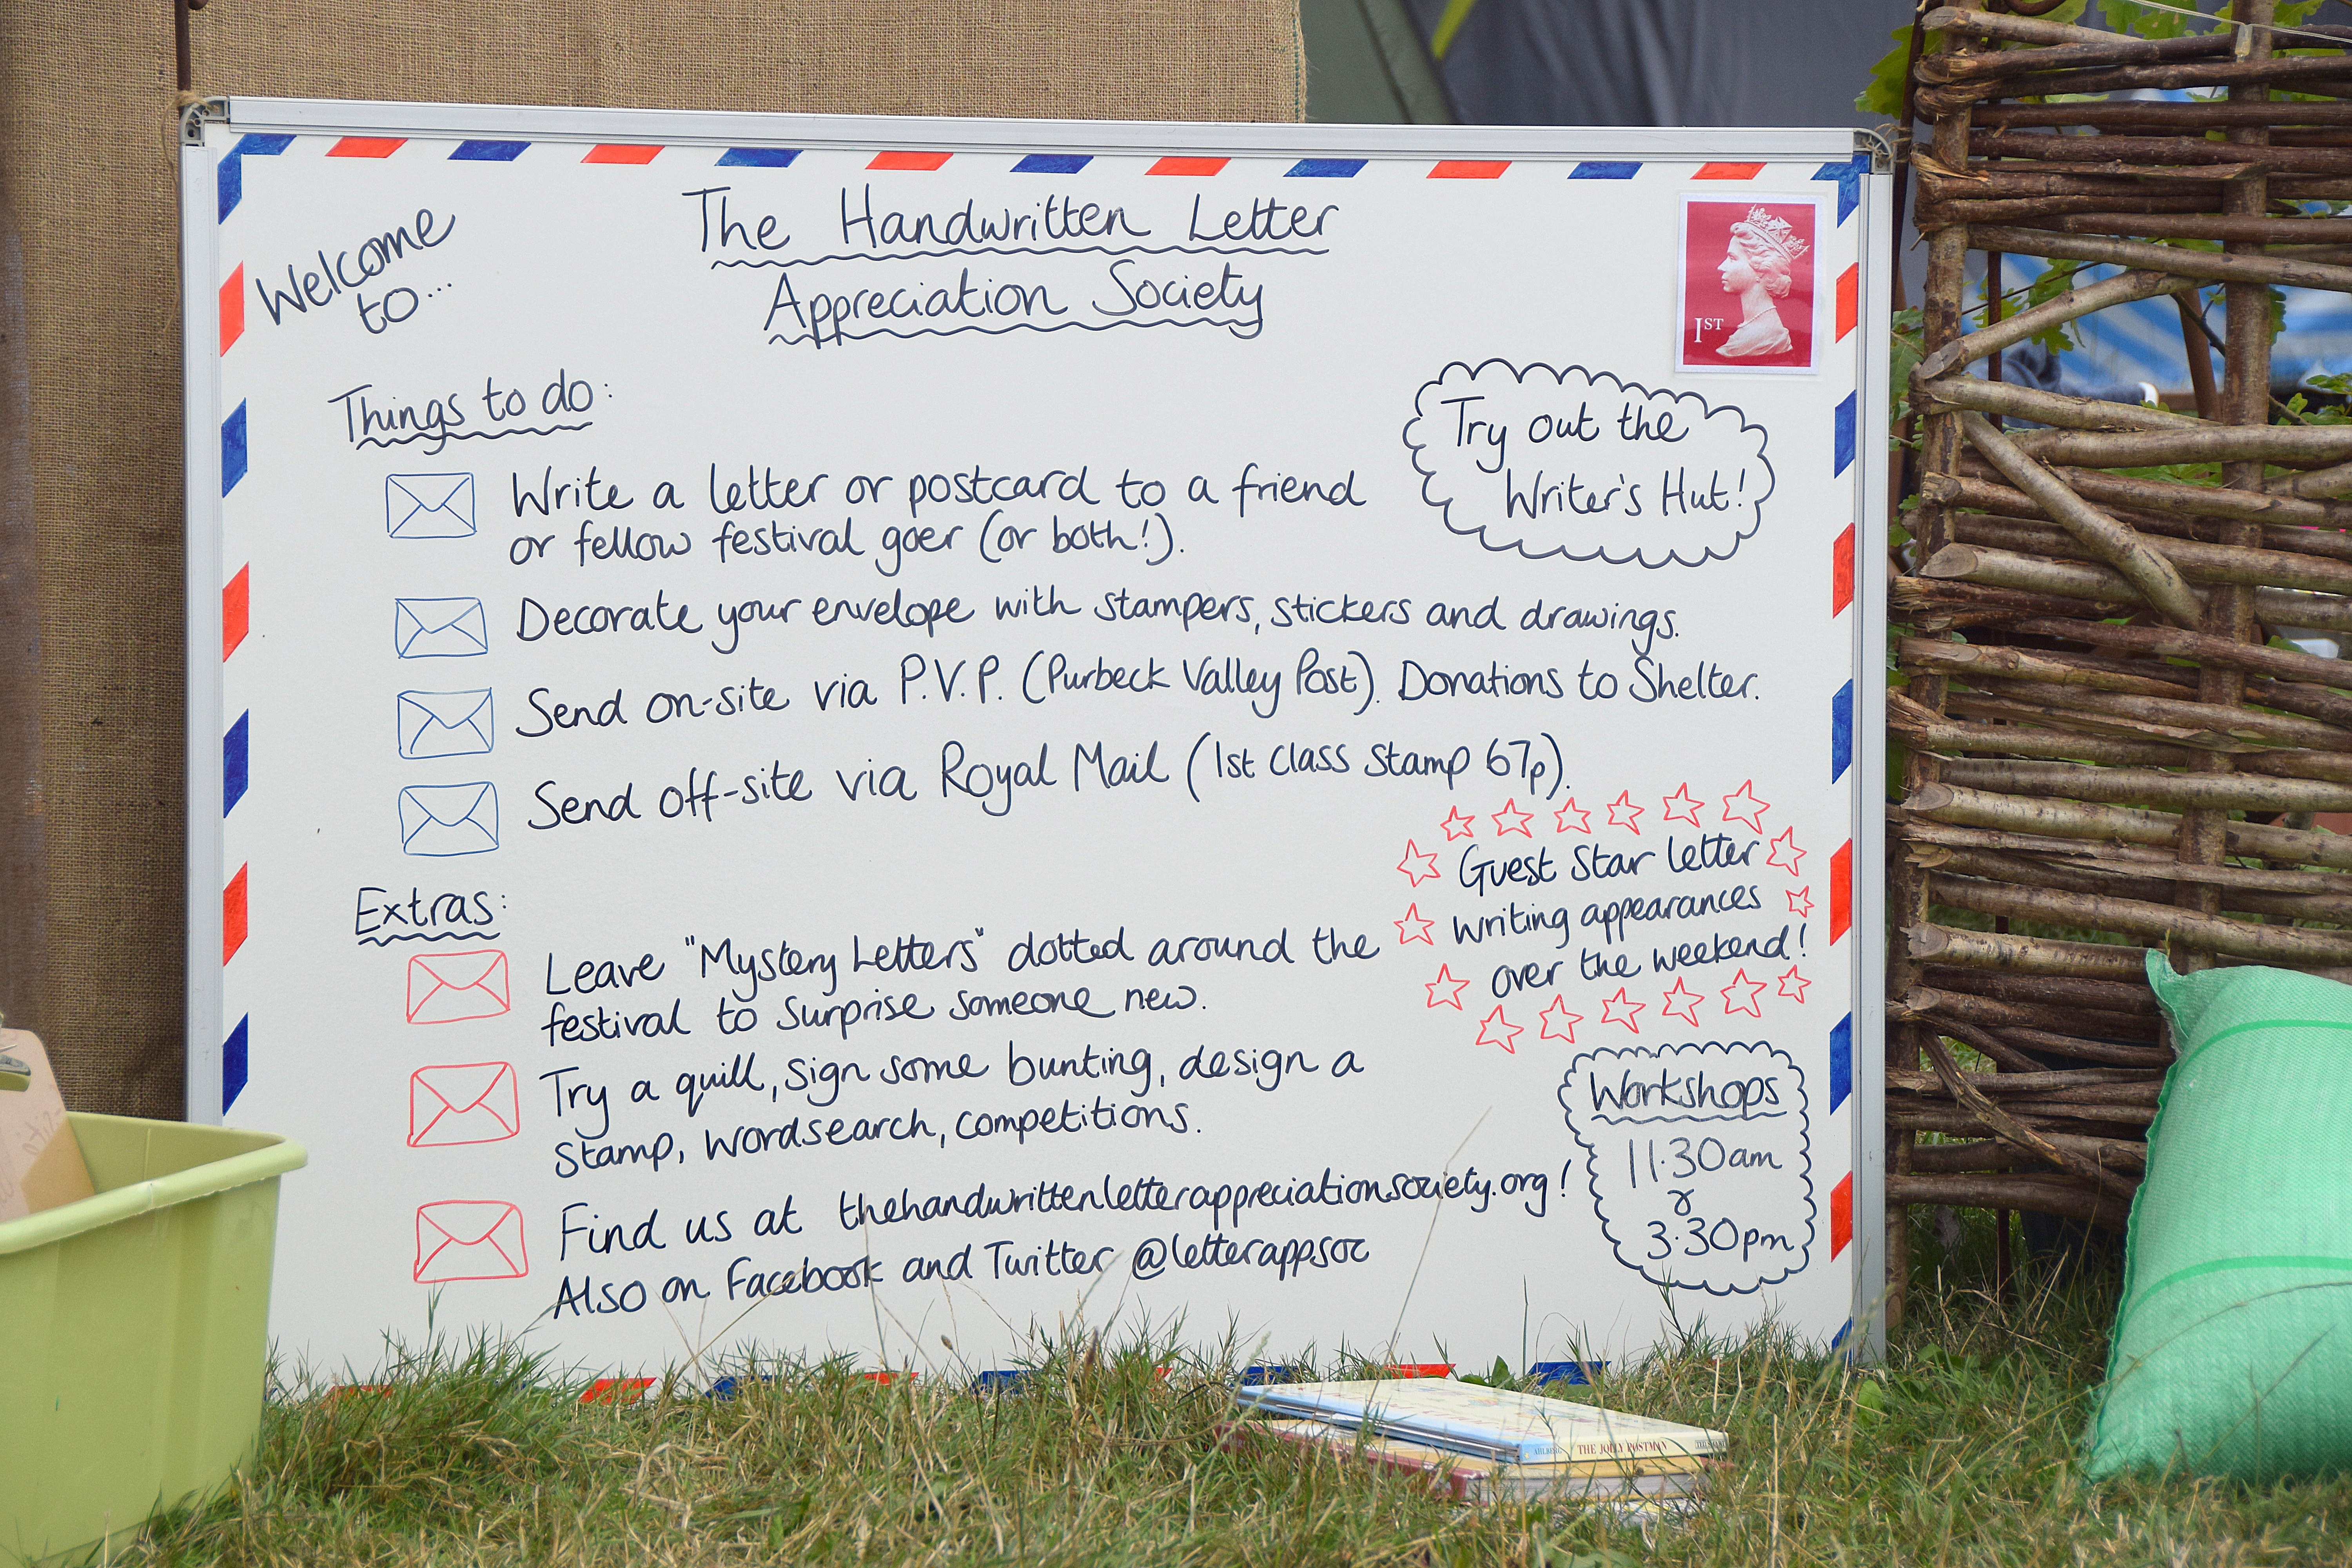 Welcome
to...
The Handwritten Letter
Appreciation Society
1ST
Things to do:
Try out the
Writer's Hut!
Write a letter or postcard to a friend
or fellow festival goer (or both!).
Decorate your envelope with stampers, stickers and drawings.
Send on-site via P.V.P. (Purbeck Valley Post). Donations to Shelter.
Send off-site via Royal Mail (1st class stamp 67p).
Guest Star letter
writing appearances
over the weekend!
Extras:
Leave "Mystery Letters" dotted around the
festival to surprise someone new.
Try a quill, sign some bunting, design a
stamp, wordsearch, competitions.
Find us at thehandwrittenletterappreciationsociety.org!
Also on Facebook and Twitter @letterappsoc
Workshops
11.30am
&
3.30pm
AHLBERG THE JOLLY POSTMAN